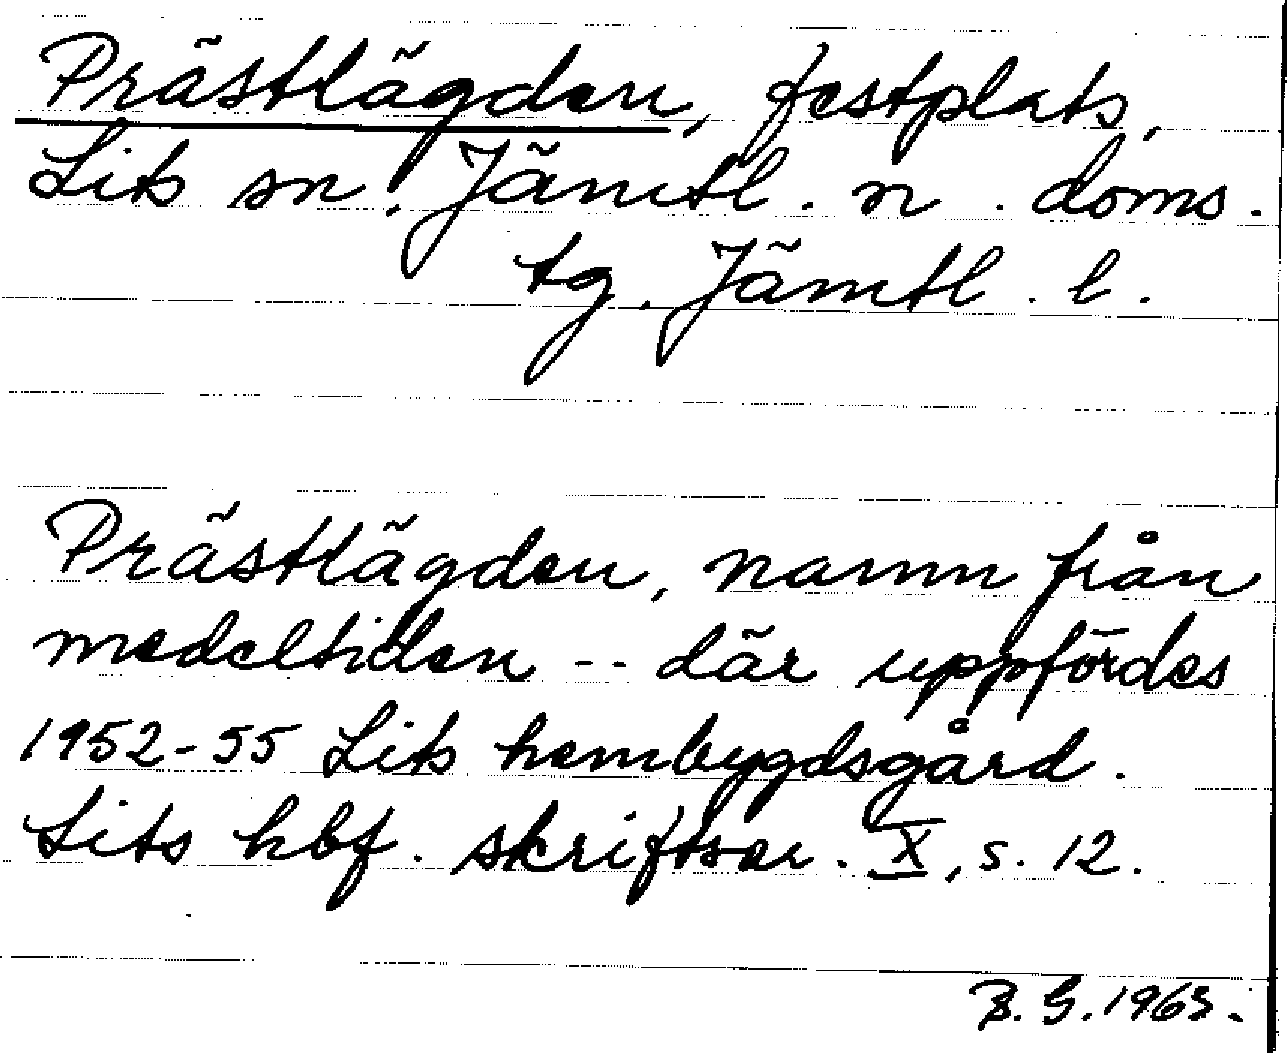 Prästlägden, festplats,
Lits sn. Jämtl. n. doms.
tg. Jämtl. l.
Prästlägden, namn från
medeltiden -- där uppfördes
1952-55 Lits hembygdsgård.
Lits hbf. skriftser. X, s. 12.
B. G. 1963.